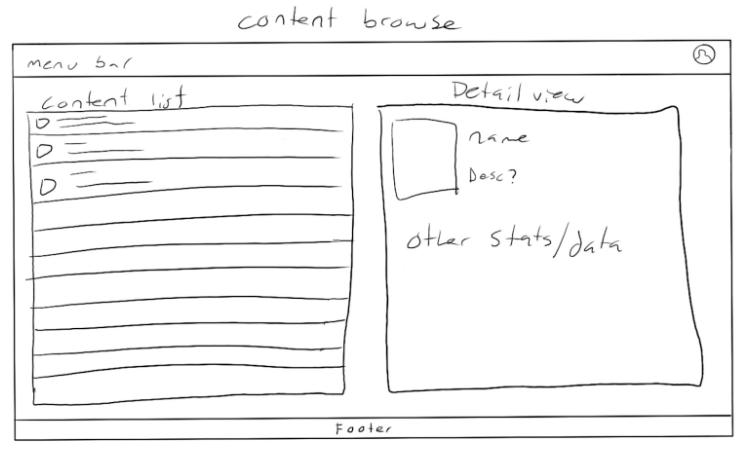 content browse
menu bar
content list
Detail view
name
Desc?
other stats/data
Footer